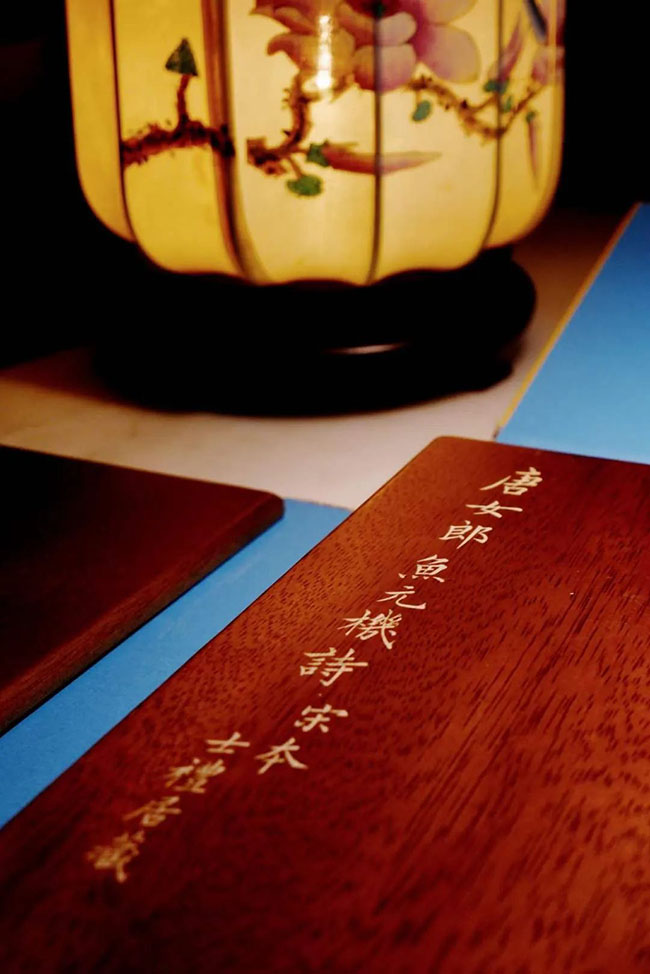 唐女郎魚元機詩宋本
士禮居藏